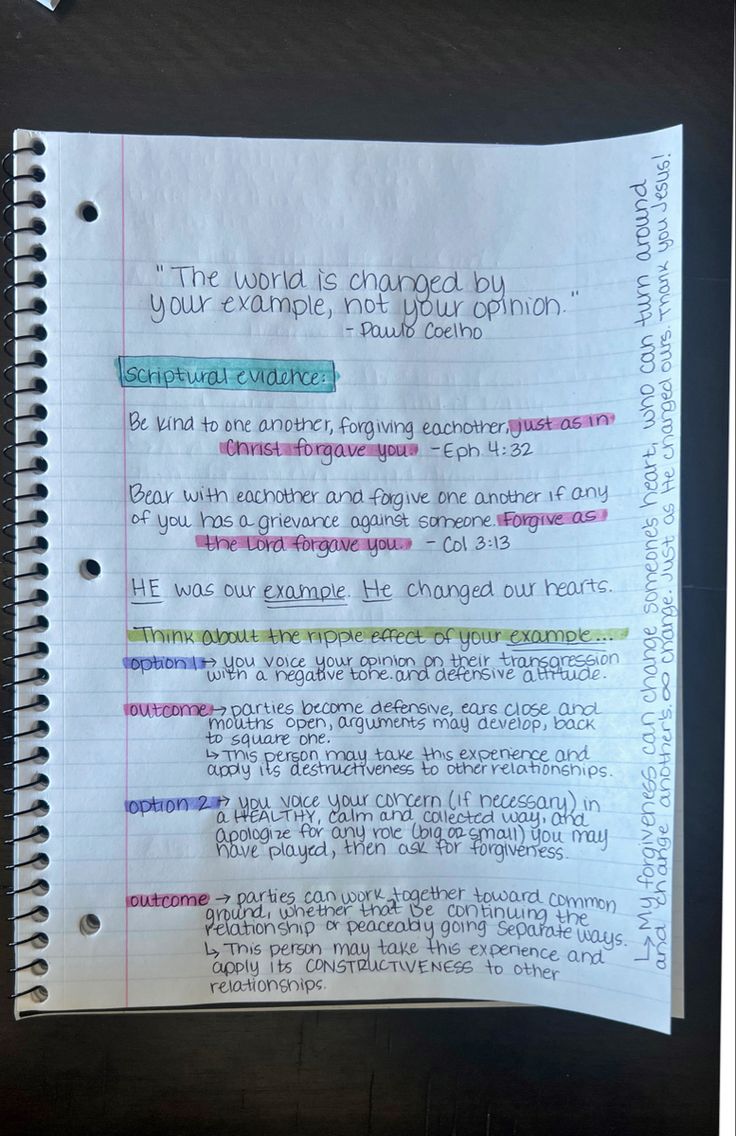 "The world is changed by
your example, not your opinion."
- Paulo Coelho
scriptural evidence:
Be kind to one another, forgiving eachother, just as in
Christ forgave you. -Eph 4:32
Bear with eachother and forgive one another if any
of you has a grievance against someone. Forgive as
the Lord forgave you. - Col 3:13
HE was our example. He changed our hearts.
Think about the ripple effect of your example...
option 1 → you voice your opinion on their transgression
with a negative tone and defensive attitude.
outcome → parties become defensive, ears close and
mouths open, arguments may develop, back
to square one.
↳ This person may take this experience and
apply its destructiveness to other relationships.
option 2 → you voice your concern (if necessary) in
a HEALTHY, calm and collected way, and
apologize for any role (big or small) you may
have played, then ask for forgiveness.
outcome → parties can work together toward common
ground, whether that be continuing the
relationship or peaceably going separate ways.
↳ This person may take this experience and
apply its CONSTRUCTIVENESS to other
relationships.
↳ My forgiveness can change someones heart, who can turn around
and change another's. ∞ change. Just as He changed ours. Thank you Jesus!